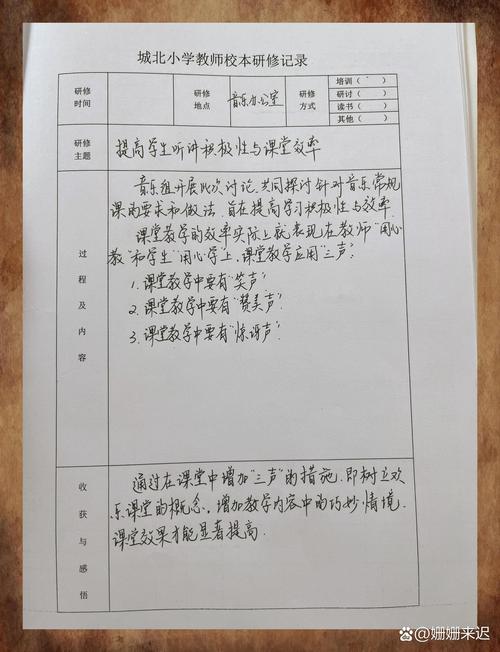 城北小学教师校本研修记录
研修时间
研修地点 音乐办公室
研修方式
培训（ ）
研讨（ ）
读书（ ）
其他（ ）
研修主题 提高学生听讲积极性与课堂效率
过程及内容
音乐组开展此次讨论,共同探讨针对音乐常规
课的要求和做法,旨在提高学习积极性与效率.
课堂教学的效率实际上就表现在教师"用心
教"和学生"用心学"上,课堂教学应用"三声":
1.课堂教学中要有"笑声"
2.课堂教学中要有"赞美声"
3.课堂教学中要有"惊讶声"
收获与感悟
通过在课堂中增加"三声"的措施,即树立欢
乐课堂的概念,增加教学内容中的巧妙情境,
课堂效果才能显著提高.
Baidu百家号@姗姗来迟